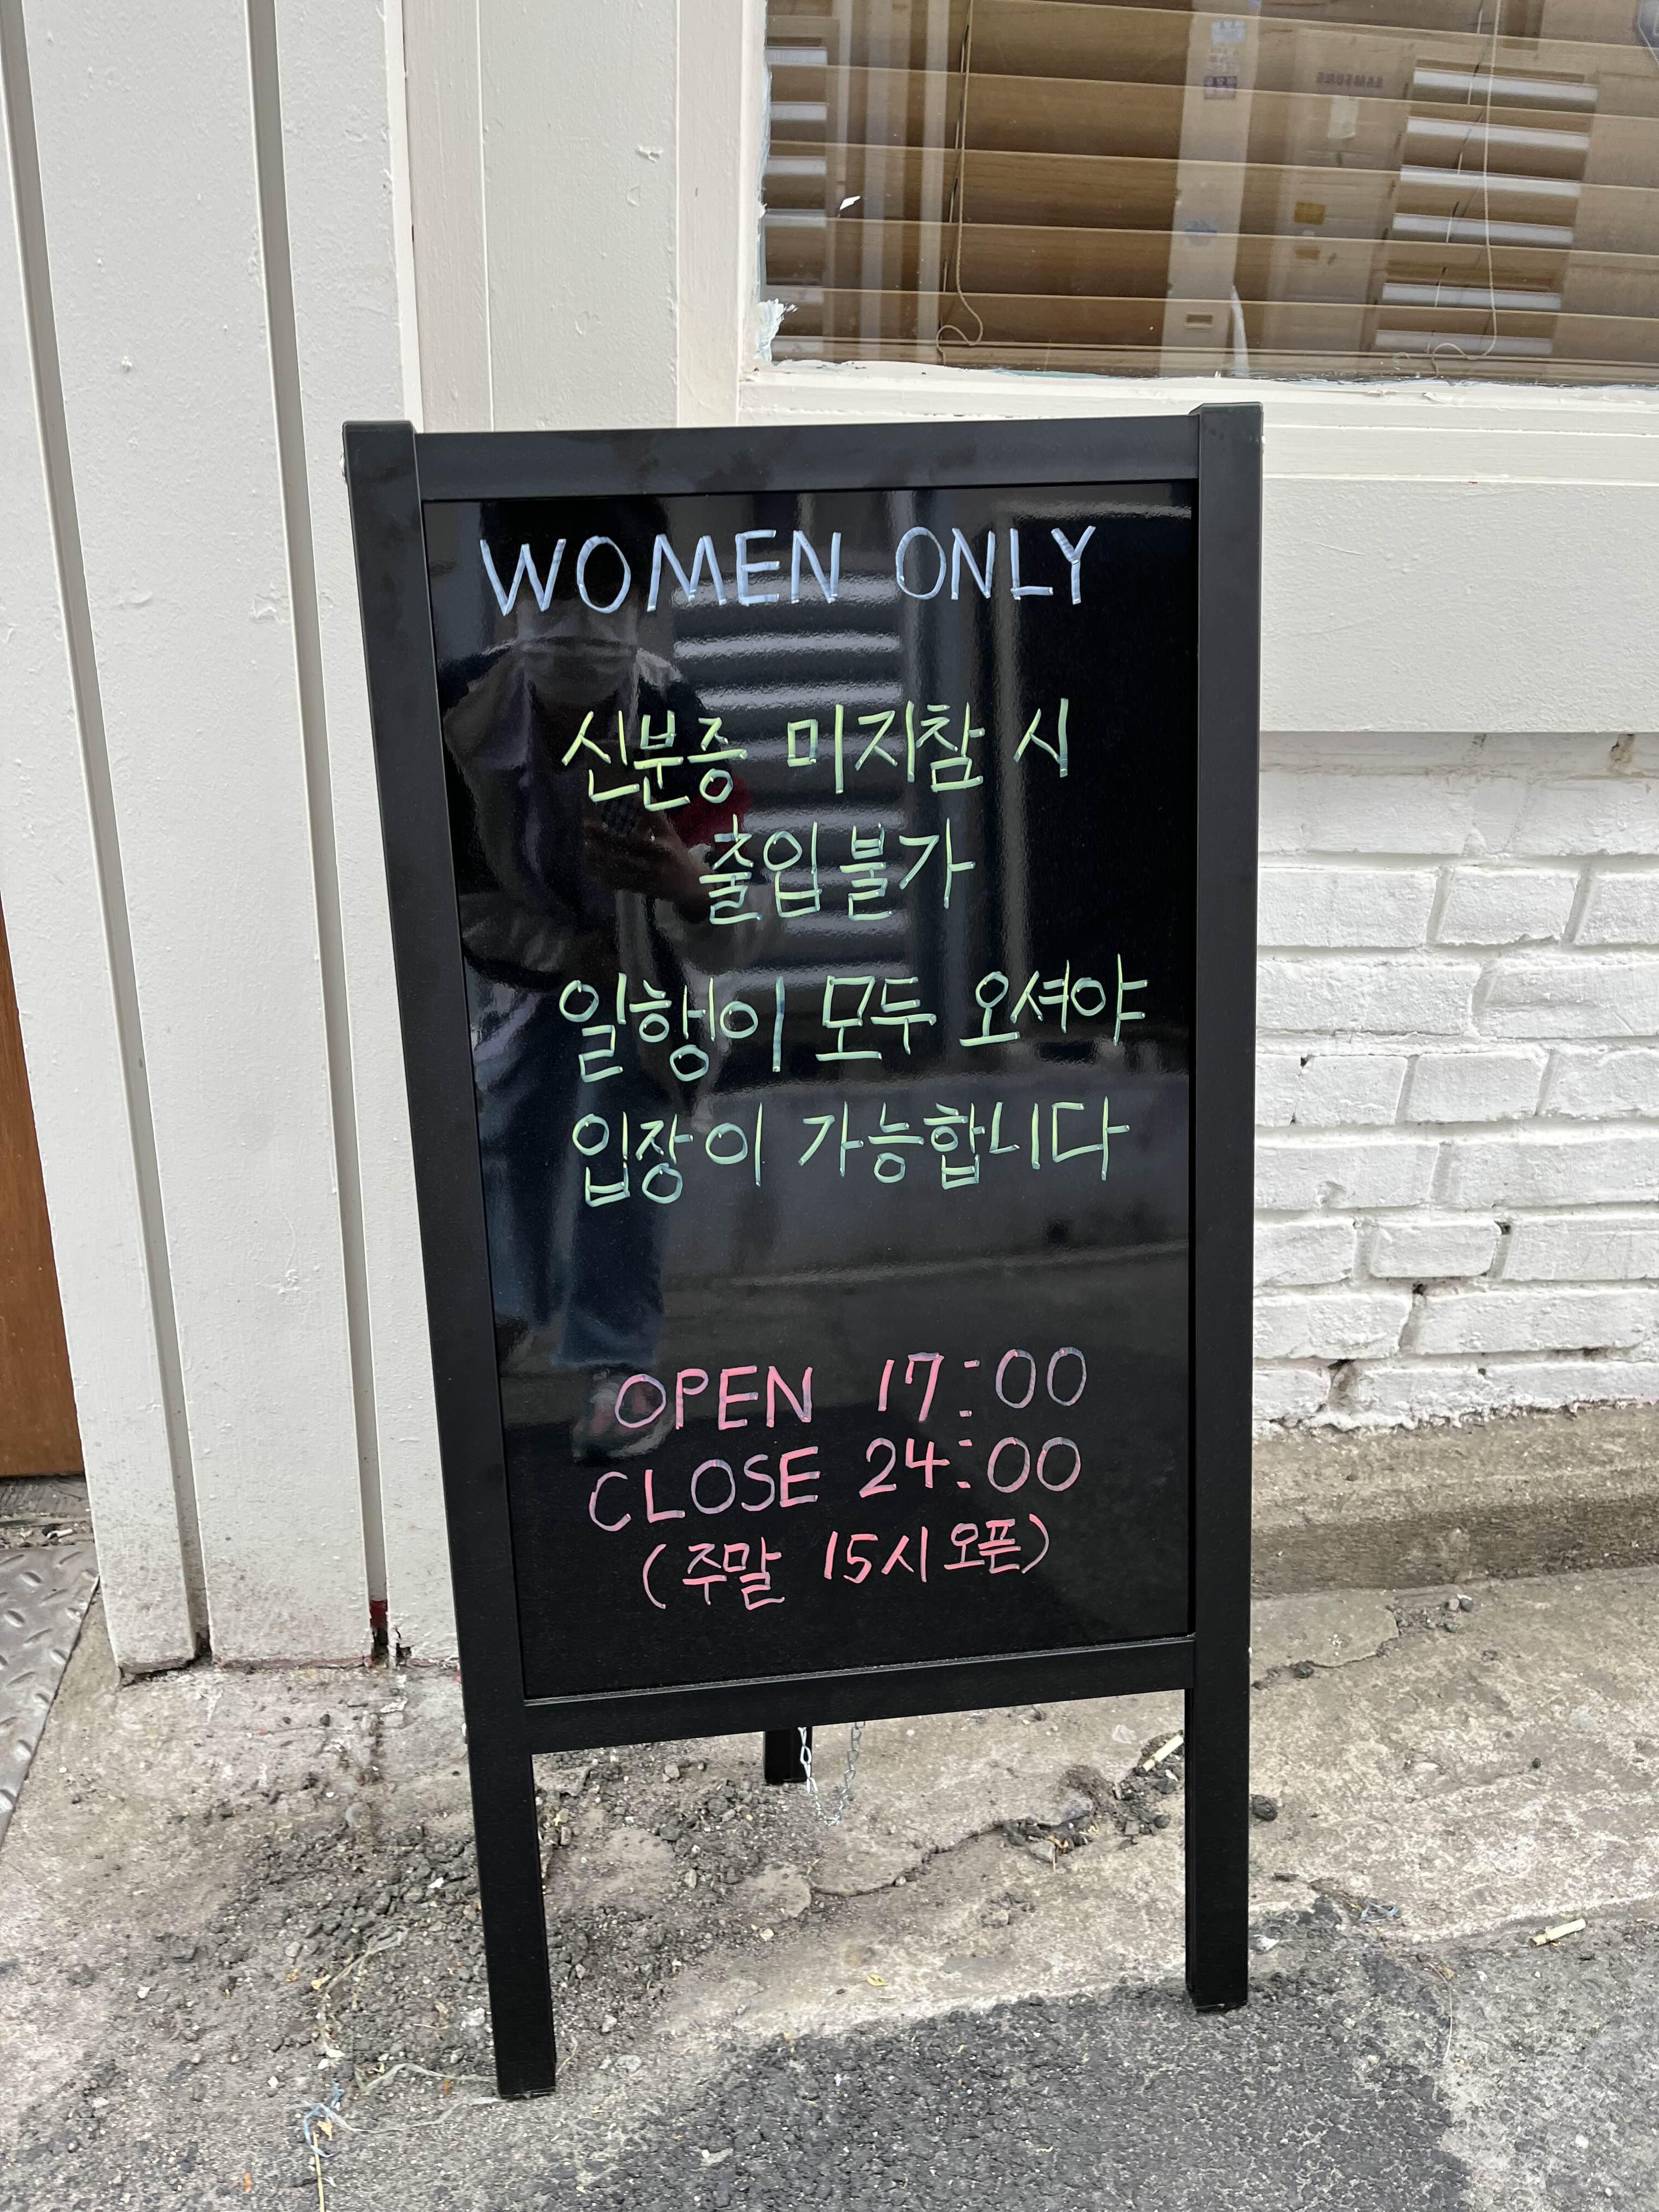 WOMEN ONLY
신분증 미지참 시
출입불가
일행이 모두 오셔야
입장이 가능합니다
OPEN 17:00
CLOSE 24:00
(주말 15시 오픈)